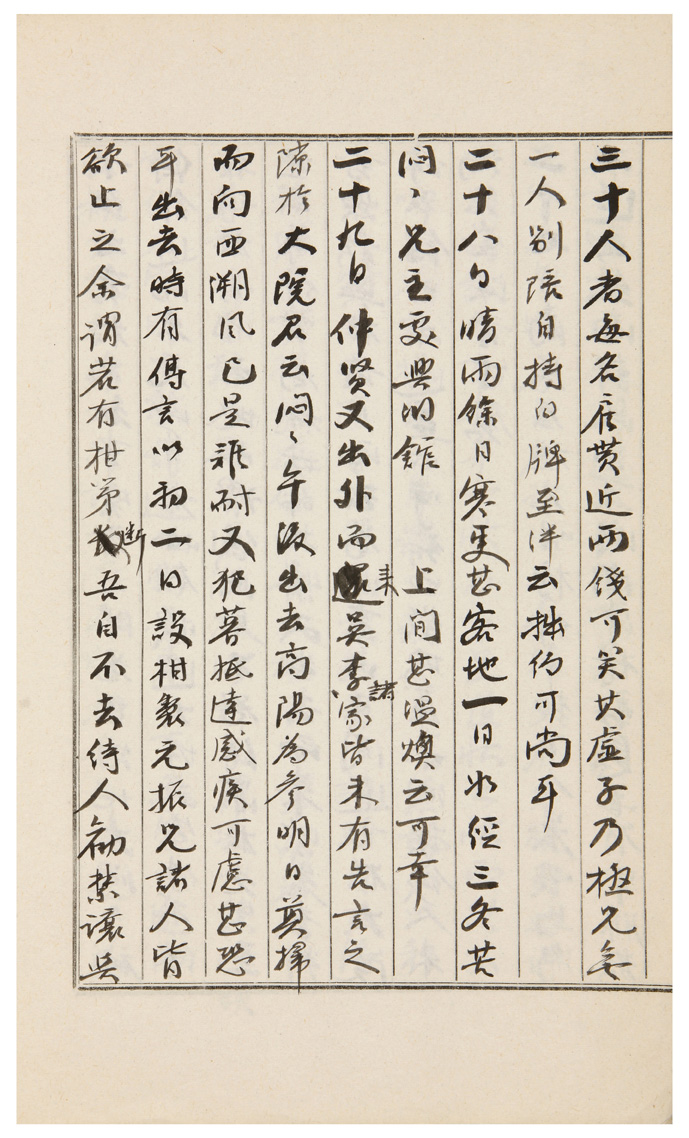 三十人者每名雇貰近兩錢可笑其虛子乃極兄無
一人別陪自持白牌至泮云拙約可尚耳
二十八日晴雨餘日寒更甚客地一日如經三冬苦
悶〻兄主處與明館 上間甚溫煥云可幸
二十九日仲賢又出外而來吳李諸家皆未有先言之
隙於大院君云悶〻午後出去高陽為參明日奠掃
而向西溯風已是難耐又犯暮抵達感疾可慮甚恐
耳出去時有傳言以初二日設柑製元振兄諸人皆
欲止之余謂若有柑第斷吾自不去待人勸禁讓吳